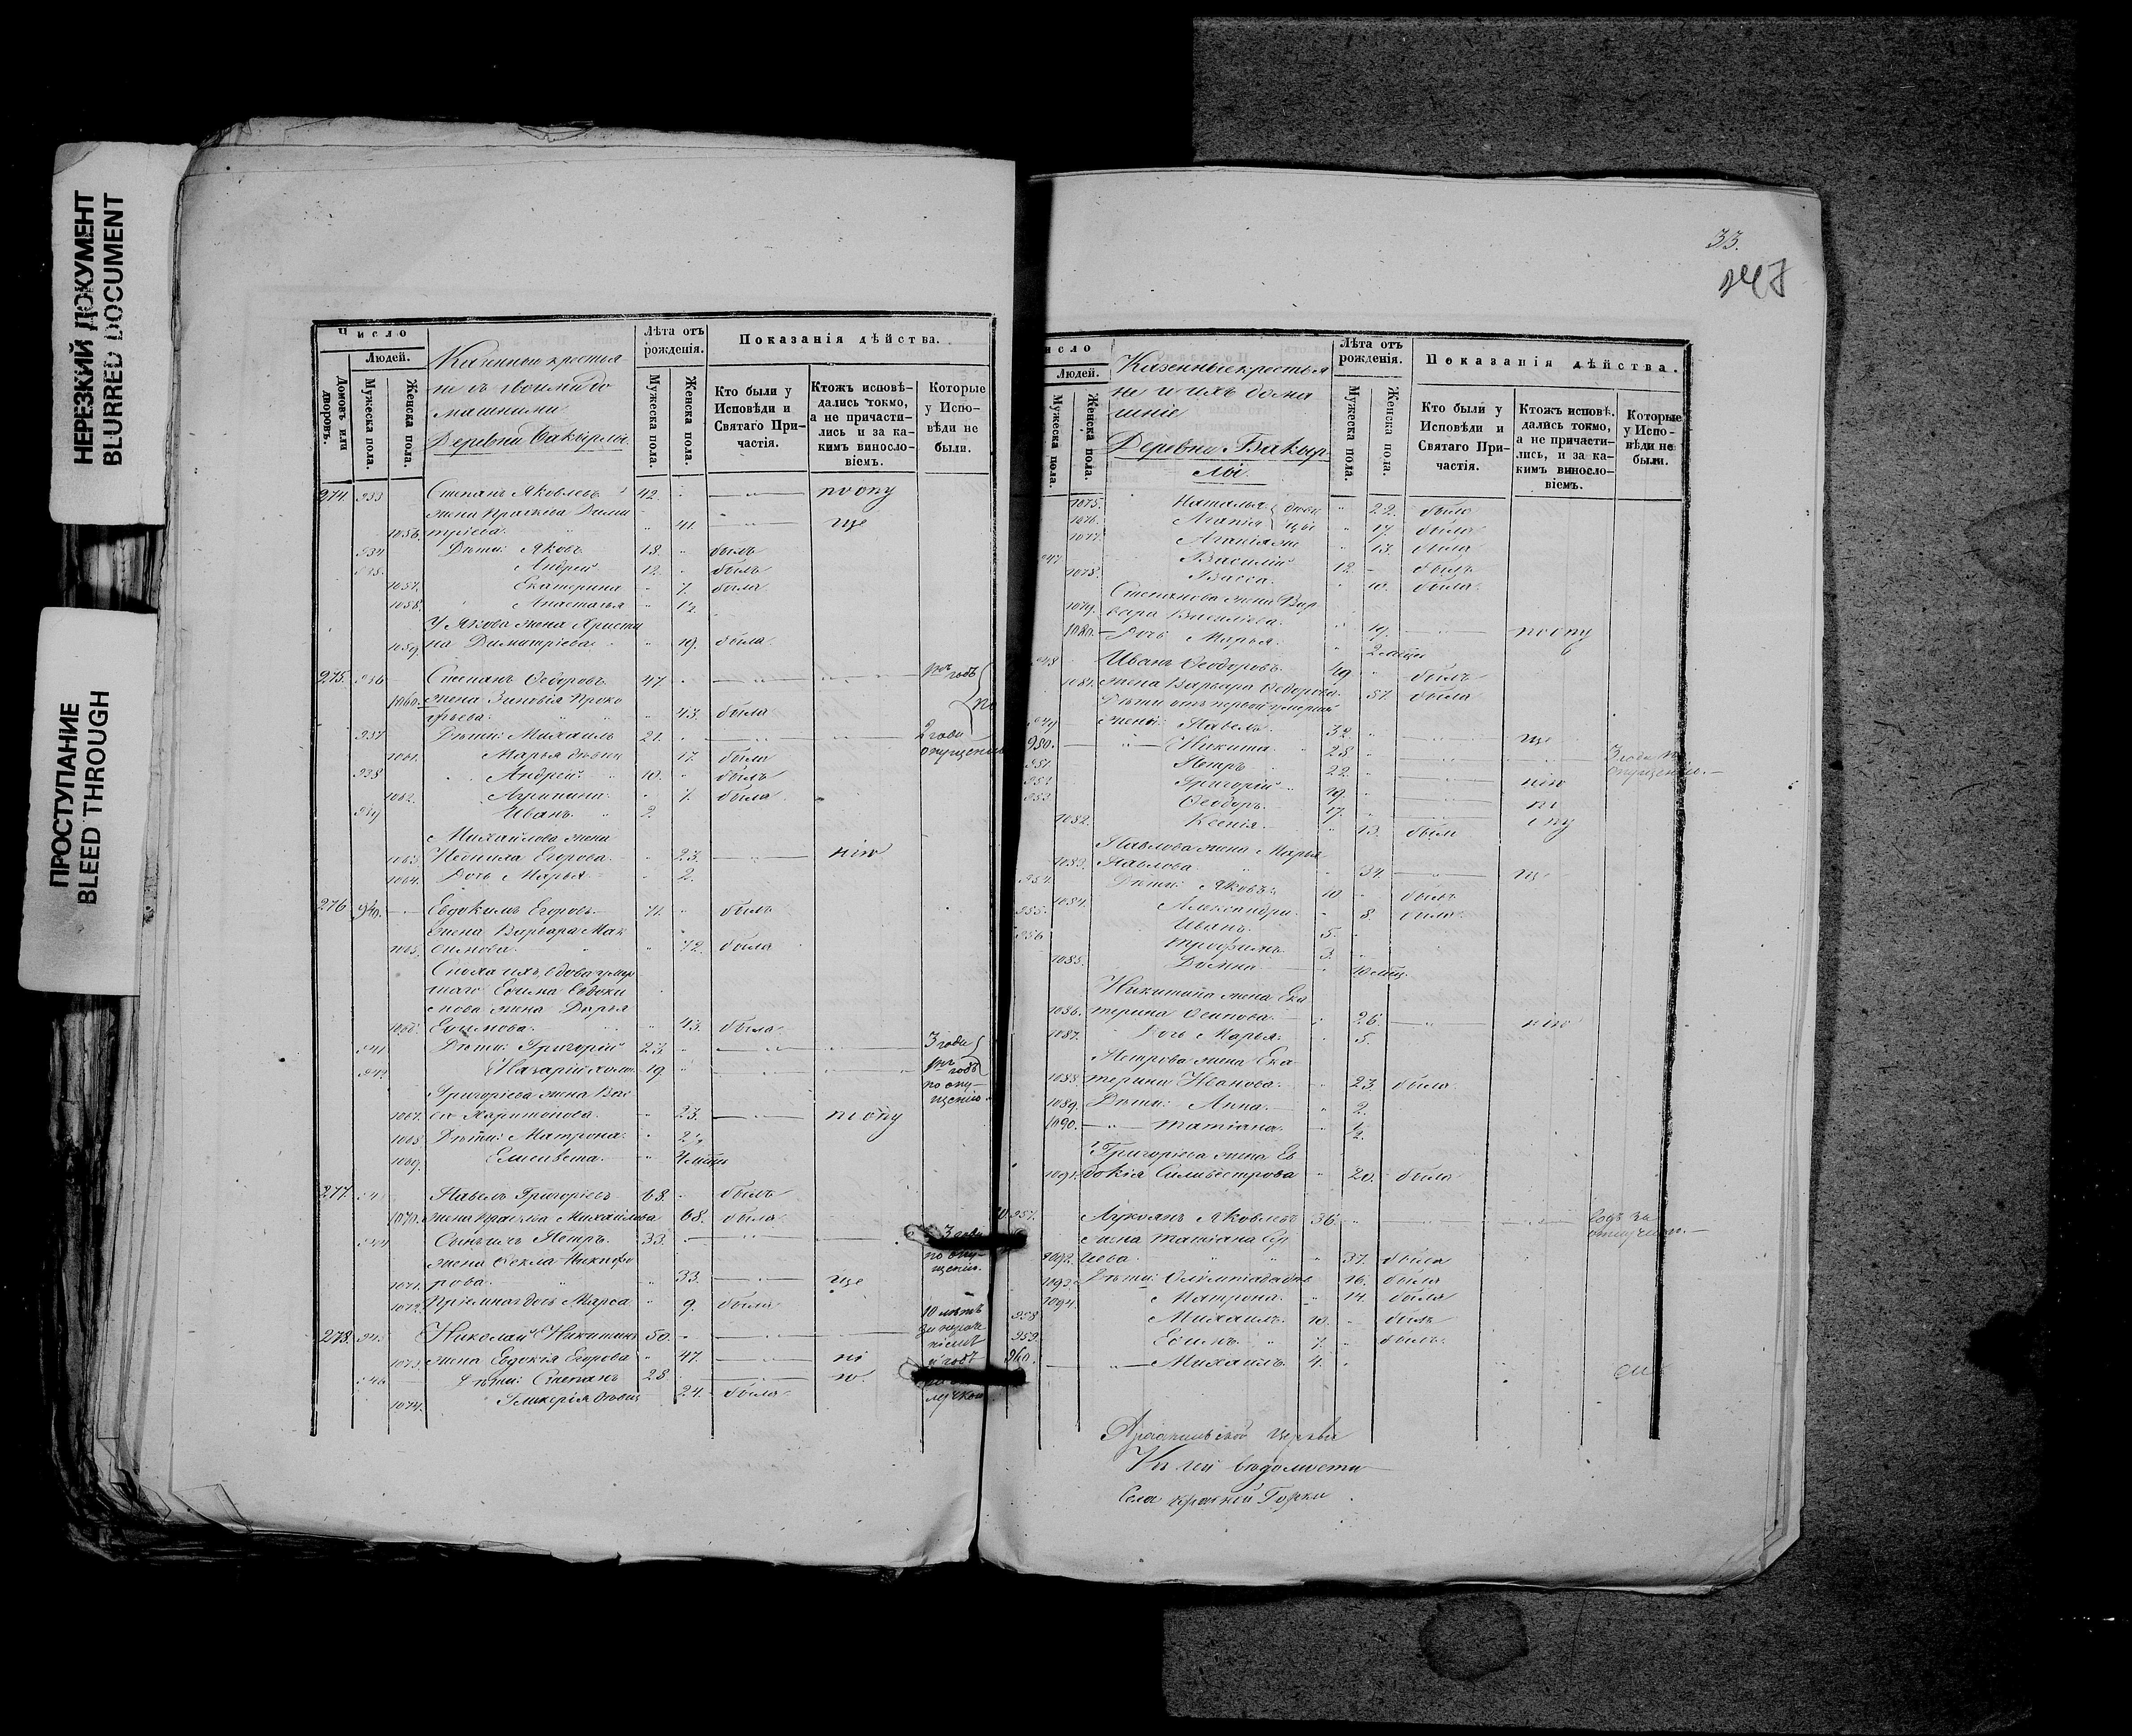 НЕРЕЗКИЙ ДОКУМЕНТ
BLURRED DOCUMENT
ПРОСТУПАНИЕ
BLEED THROUGH
Число
Людей.
Домовъ или дворовъ.
Мужеска пола.
Женска пола.
Лѣта отъ рожденія.
Мужеска пола.
Женска пола.
Показанія дѣйства.
Кто были у Исповѣди и Святаго Причастія.
Ктожъ исповѣдались токмо, а не причастились и за какимъ винословіемъ.
Которые у Исповѣди не были.
Казенные крестья
не съ своими до
машними
Деревни Бакырлы
274. 933 Степанъ Яковлевъ 42. по опу
жена Праскева Дими
1056. тріева 41. ще
934 Дѣти: Яковъ 18. былъ
935. Андрей 12. былъ
1057. Екатерина 7. была
1058. Анастасья 12.
У Якова жена Христи
1059. на Димитріева 19. была
275. 936 Степанъ Ѳедоровъ 47. годъ
1060. жена Зиновія Проко
фьева 43. была
937 Дѣти: Михаилъ 21. 2 года
1061. Марья дѣвица 17. была опущенію
938 Андрей 10. былъ
1062. Агрипина 7. была
939 Иванъ 2
Михайлова жена
1063 Неонила Егорова 23. нію
1064. Дочь Марья 2.
276 940. Евдокимъ Егоровъ 71. былъ
Жена Варвара Мак
1065. симова 72. была
Сноха ихъ, вдова умер
шаго Ефима Евдоки
мова жена Дарья
1066. Ефимова 43. была
941 Дѣти: Григорій 23 3 года
942. Назарій холо. 19. годъ
по опу-
щенію.
Григоріева жена Вас
1067. са Харитонова 23. по опу
1068. Дѣти: Матрона 2½
1069. Елисавета 4 мѣсц
277. 943 Павелъ Григорьевъ 68. былъ
1070. жена Праскева Михайлова 68. была
944 Сынъ ихъ Петръ 33. 3 года
по опу-
щенію.
жена Ѳекла Никифо
1071. рова 33. ще
1072. Пріемная дочь Марѳа 9. была
278. 945 Николай Никитинъ 50. 10 лѣтъ
1073. жена Евдокія Егорова 47. ні
946 Дѣти: Степанъ 28 ю.
1074. Гликерія дѣвиц 24. была
33.
247
Число
Людей.
Мужеска пола.
Женска пола.
Лѣта отъ рожденія.
Мужеска пола.
Женска пола.
Показанія дѣйства.
Кто были у Исповѣди и Святаго Причастія.
Ктожъ исповѣ. дались токмо, а не причастились, и за какимъ винословіемъ.
Которые у Исповѣди не были.
Казенные крестья
не и ихъ дома
шніе
Деревни Бакыр
лы.
1075. Наталья 22. была
1076. Агапія 17. была
1077. Агапія же 13. была
947 Василій 12. былъ
1078. Васса 10. была
Степанова жена Вар
1079. вара Васильева 19. по опу
1080. Дочь Марья 2 мѣсц
948 Иванъ Ѳеодоровъ 49 былъ
1081. жена Варвара Ѳедорова 57. была
Дѣти отъ первой умершей
949 жены: Павелъ 32. ще
950. Никита 28 3 года по
951. Петръ 22. опущенію.
952. Григорій 19. нію
953. Ѳеодоръ 17. по
1082. Ксенія 13. была
Павлова жена Марья
1083. Павлова 34. ще
954. Дѣти: Яковъ 10 былъ
1084. Александра 8. была
955. Иванъ 5.
956 Трофимъ 3.
1085. Домна 10 мѣц.
Никитина жена Ека
1086. терина Осипова 26. нію
1087. Дочь Марья 5.
Петрова жена Ека
1088. терина Иванова 23 была
1089. Дѣти: Анна 2.
1090. Татіана ½.
Григоріева жена Ев
1091. докія Сильвестрова 20. была
957. Лукьянъ Яковлевъ 36 годъ за
отлучкою.
жена Татіана Ер
1092. 37. была
1093. Дѣти: Олимпіада 16. была
1094. Матрона 14. была
958 Михаилъ 10. былъ
959. Ефимъ 7. былъ
960. Михаилъ 4.
церкви
Къ сей вѣдомости
Села Красной Горки